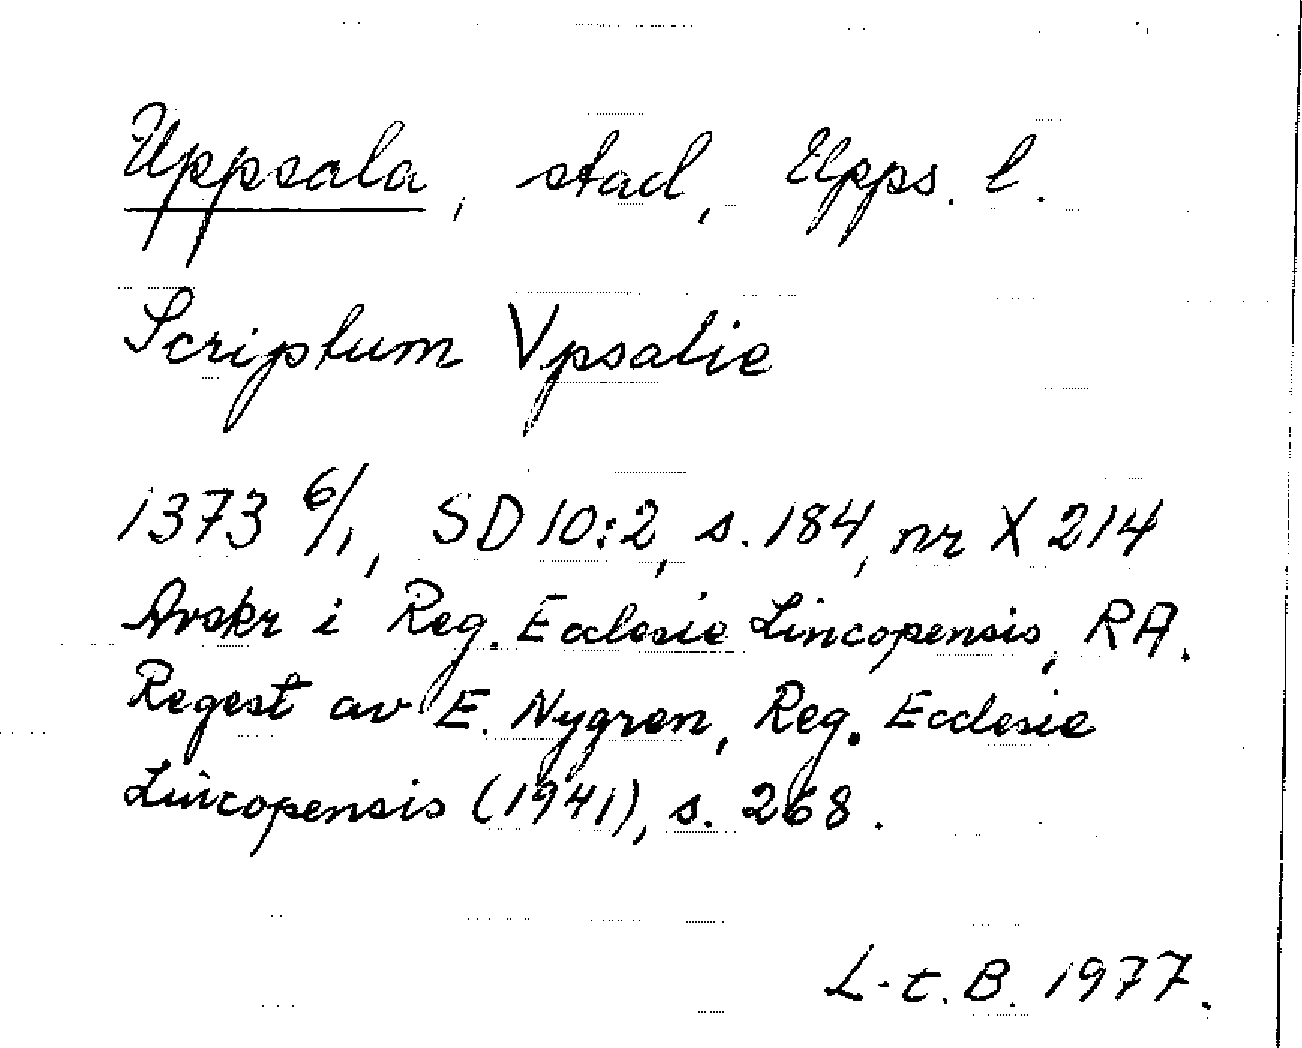 Uppsala, stad, Upps. l.
Scriptum Vpsalie
1373 6/1, SD 10:2, s. 184, nr X 214
Avskr i Reg. Ecclesie Lincopensis, RA.
Regest av E. Nygren, Reg. Ecclesie
Lincopensis (1941), s. 268.
L-t. B. 1977.